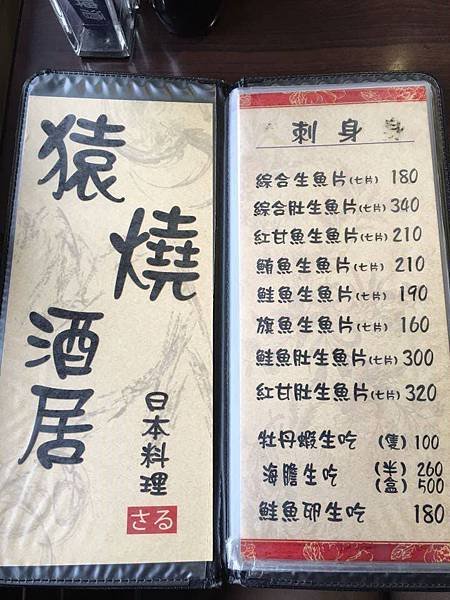 猿燒酒居
日本料理
さる
刺身
綜合生魚片(七片) 180
綜合肚生魚片(七片) 340
紅甘魚生魚片(七片) 210
鮪魚生魚片(七片) 210
鮭魚生魚片(七片) 190
旗魚生魚片(七片) 160
鮭魚肚生魚片(七片) 300
紅甘肚生魚片(七片) 320
牡丹蝦生吃 (隻) 100
海膽生吃 (半) 260
(盒) 500
鮭魚卵生吃 180